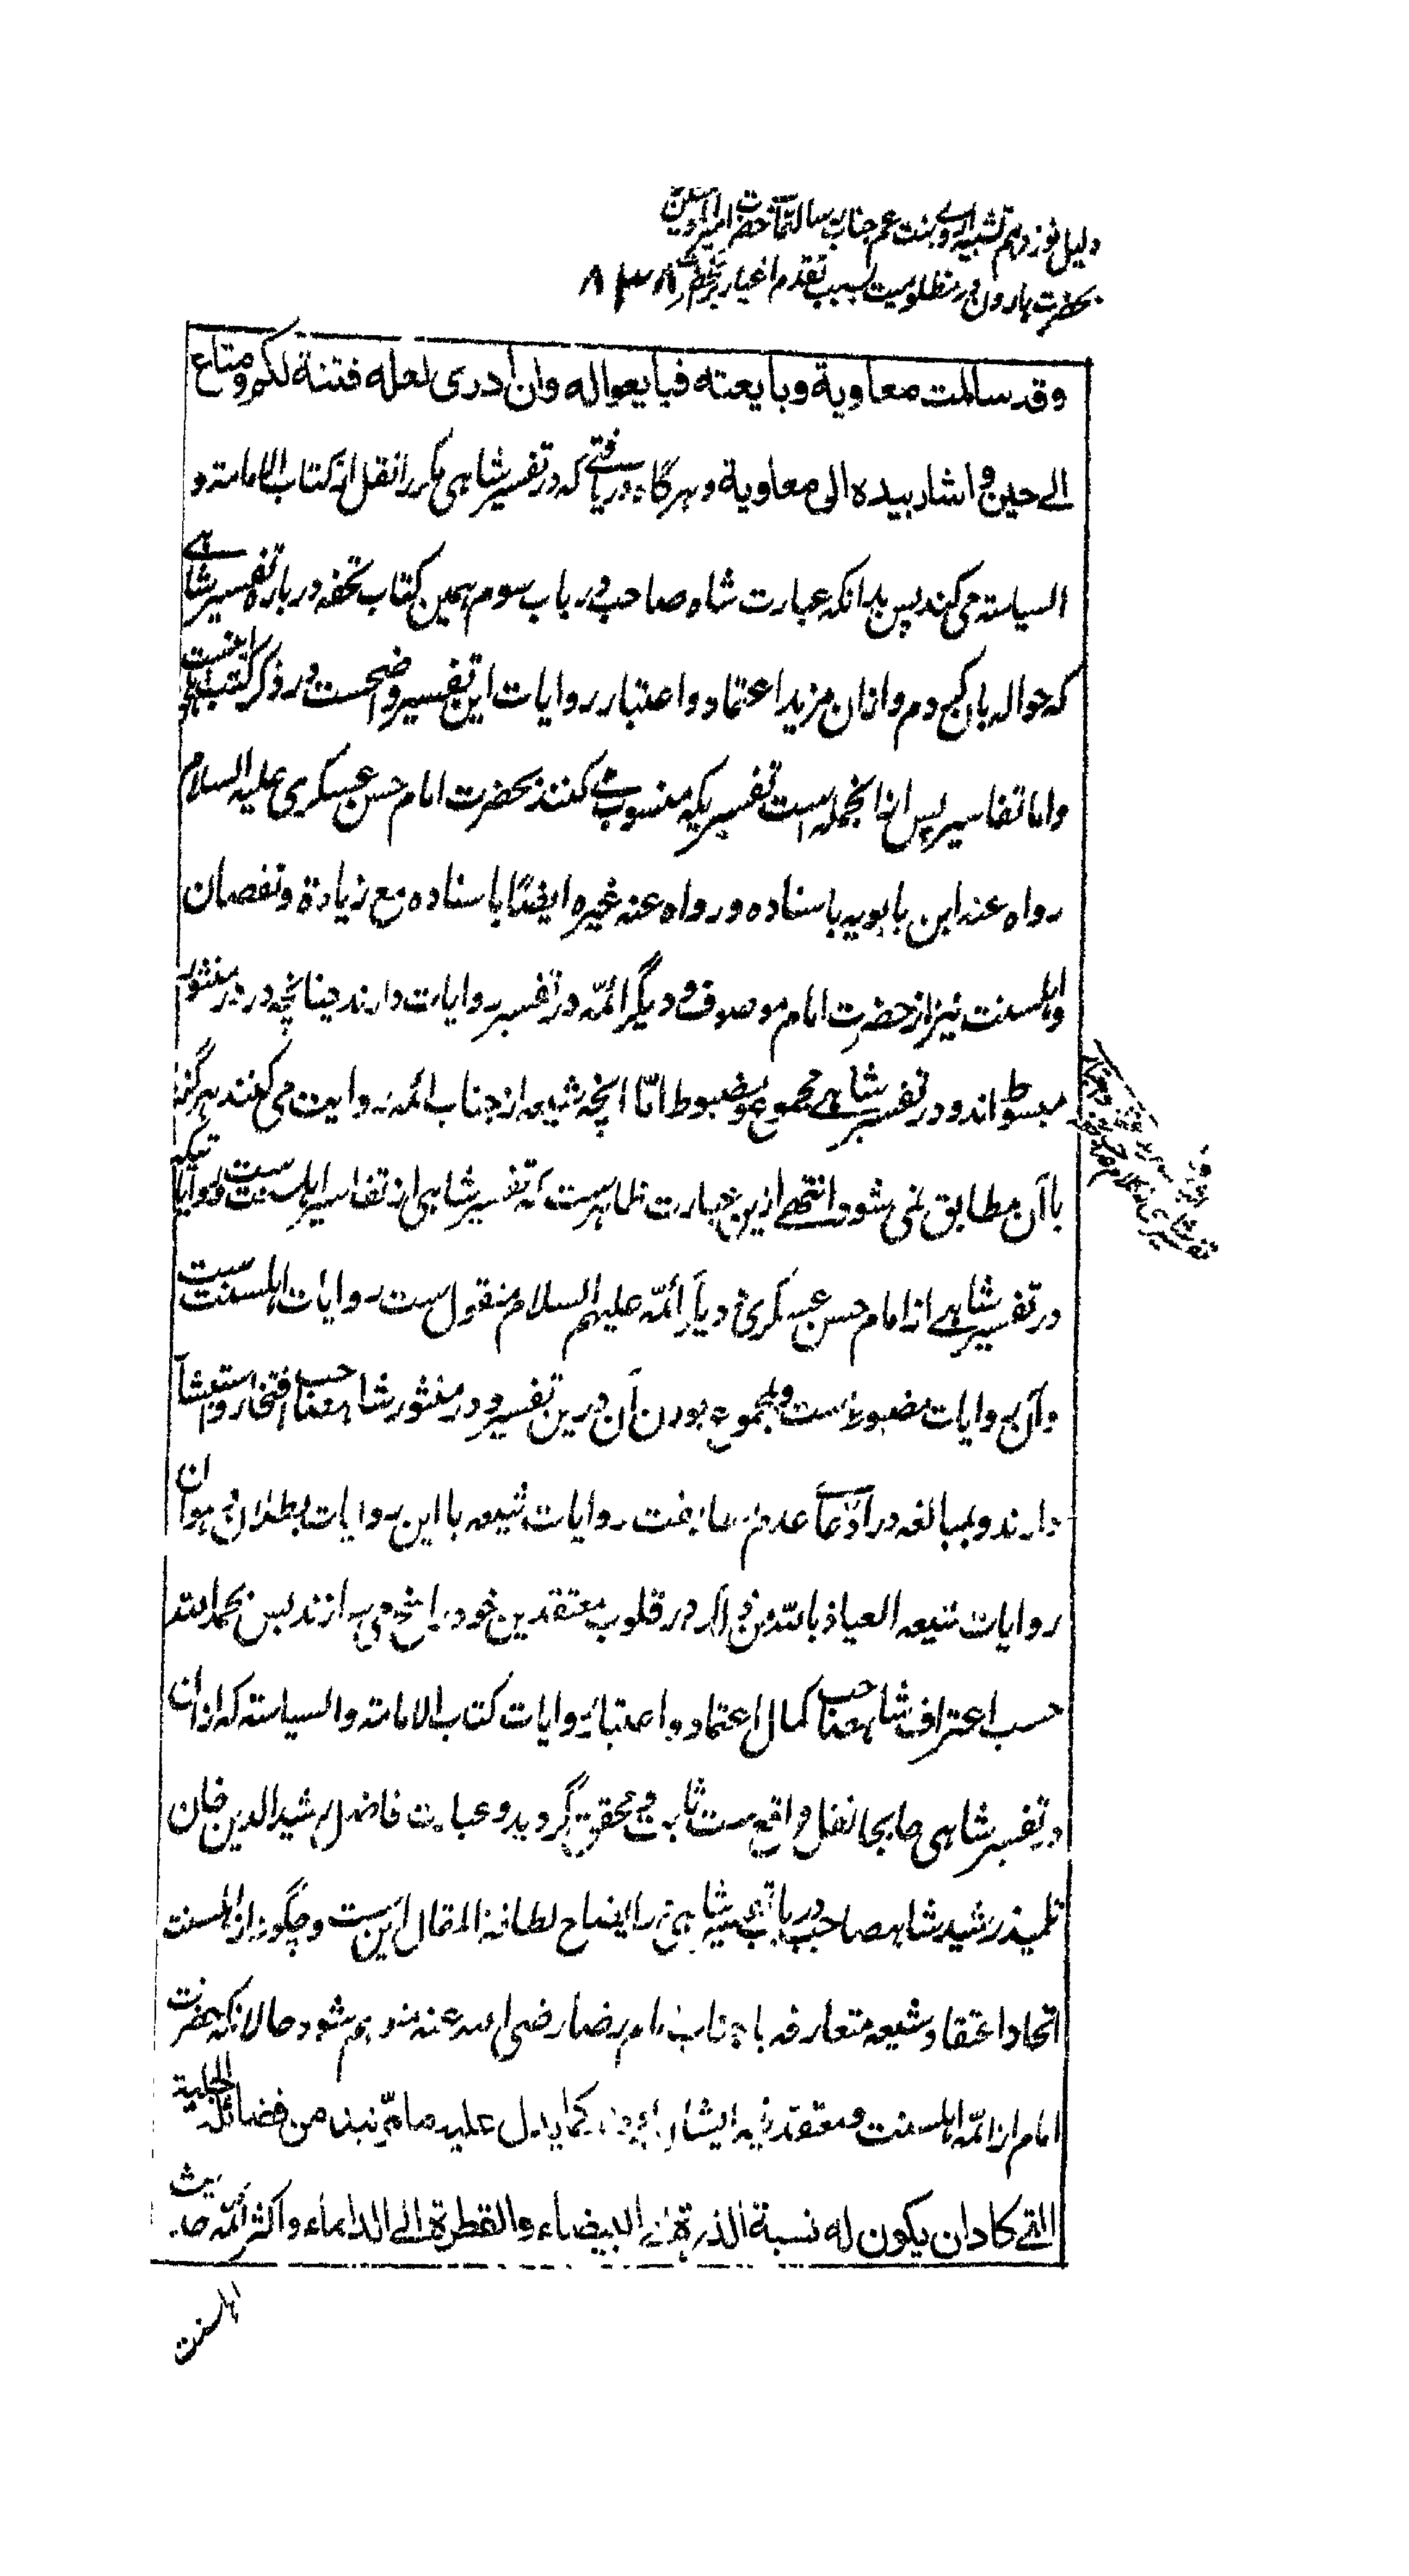 دلیل نوزدهم تشبیه اروی بنت عم جناب رسالتمآب حضرت امیرالمؤمنین
بحضرت هارون در مظلومیت بسبب تقدم اغیار بر آنحضرت ۸۳۸
وقد سالمت معاویة وبایعته فبایعوا له وان أدری لعله فتنة لکم ومتاع
الے حین و اشار بیده الی معاویة و هرگاه دریافتے که در تفسیر شاهی مکرر نقل از کتاب الامامة و
السیاسته می کند پس بدانکه عبارت شاه صاحب در باب سوم همین کتاب تحفه در باره تفسیر شاهے
که حواله بآن کردم و ازان مزید اعتماد و اعتبار روایات این تفسیر واضحست در ذکر کتب اینست
واما تفاسیر پس ازانجمله است تفسیریکه منسوب مے کنند بحضرت امام حسن عسکری علیه السلام
رواه عنه ابن بابویه باسناده ورواه عنه غیره ایضًا باسناده مع زیادة ونقصان
و اهلسنت نیز از حضرت امام موصوف و دیگر ائمه در تفسیر روایات دارند چنانچه در در منثور
مبسوط اند و در تفسیر شاهے مجموع و مضبوط امّا آنچه شیعه از جناب ائمه روایت می کنند هرگز
با آن مطابق نمی شود انتهے ازین عبارت ظاهرست که تفسیر شاهی از تفاسیر اهلسنت ست و روایاتیکه
در تفسیر شاهے از امام حسن عسکری و دیگر ائمه علیهم السلام منقول ست روایات اهلسنت ست
و آن روایات مضبوط ست و بمجموع بودن آن درین تفسیر و در منثور شاهصاحب افتخار و استبشار
دارند و بمبالغه در ادّعاے عدم مطابقت روایات شیعه با این روایات بطلان و هوان
روایات شیعه العیاذ بالله من ذلک در قلوب معتقدین خود راسخ می سازند پس بحمد الله
حسب اعتراف شاهصاحب کمال اعتماد و اعتبار روایات کتاب الامامة والسیاسته که ازان
در تفسیر شاهی جابجا نقل واقع ست ثابت و محقق گردید و عبارت فاضل رشیدالدین خان
تلمیذ رشید شاهصاحب در باب تفسیر شاهی در ایضاح لطافة المقال این ست و چگونه از اهلسنت
اتحاد اعتقاد شیعه متعارفه با جناب امام رضا رضی الله عنه متوهم شود حالانکه حضرت
امام از ائمّه اهلسنت و معتقد فیه ایشان بوده کما یدل علیه ما مرّ نبذ من فضائله الجلیة
التے کاد ان یکون له نسبة الذرة الے البیضاء والقطرة الے الداماء و اکثر ائمّه حدیث
اهلسنت